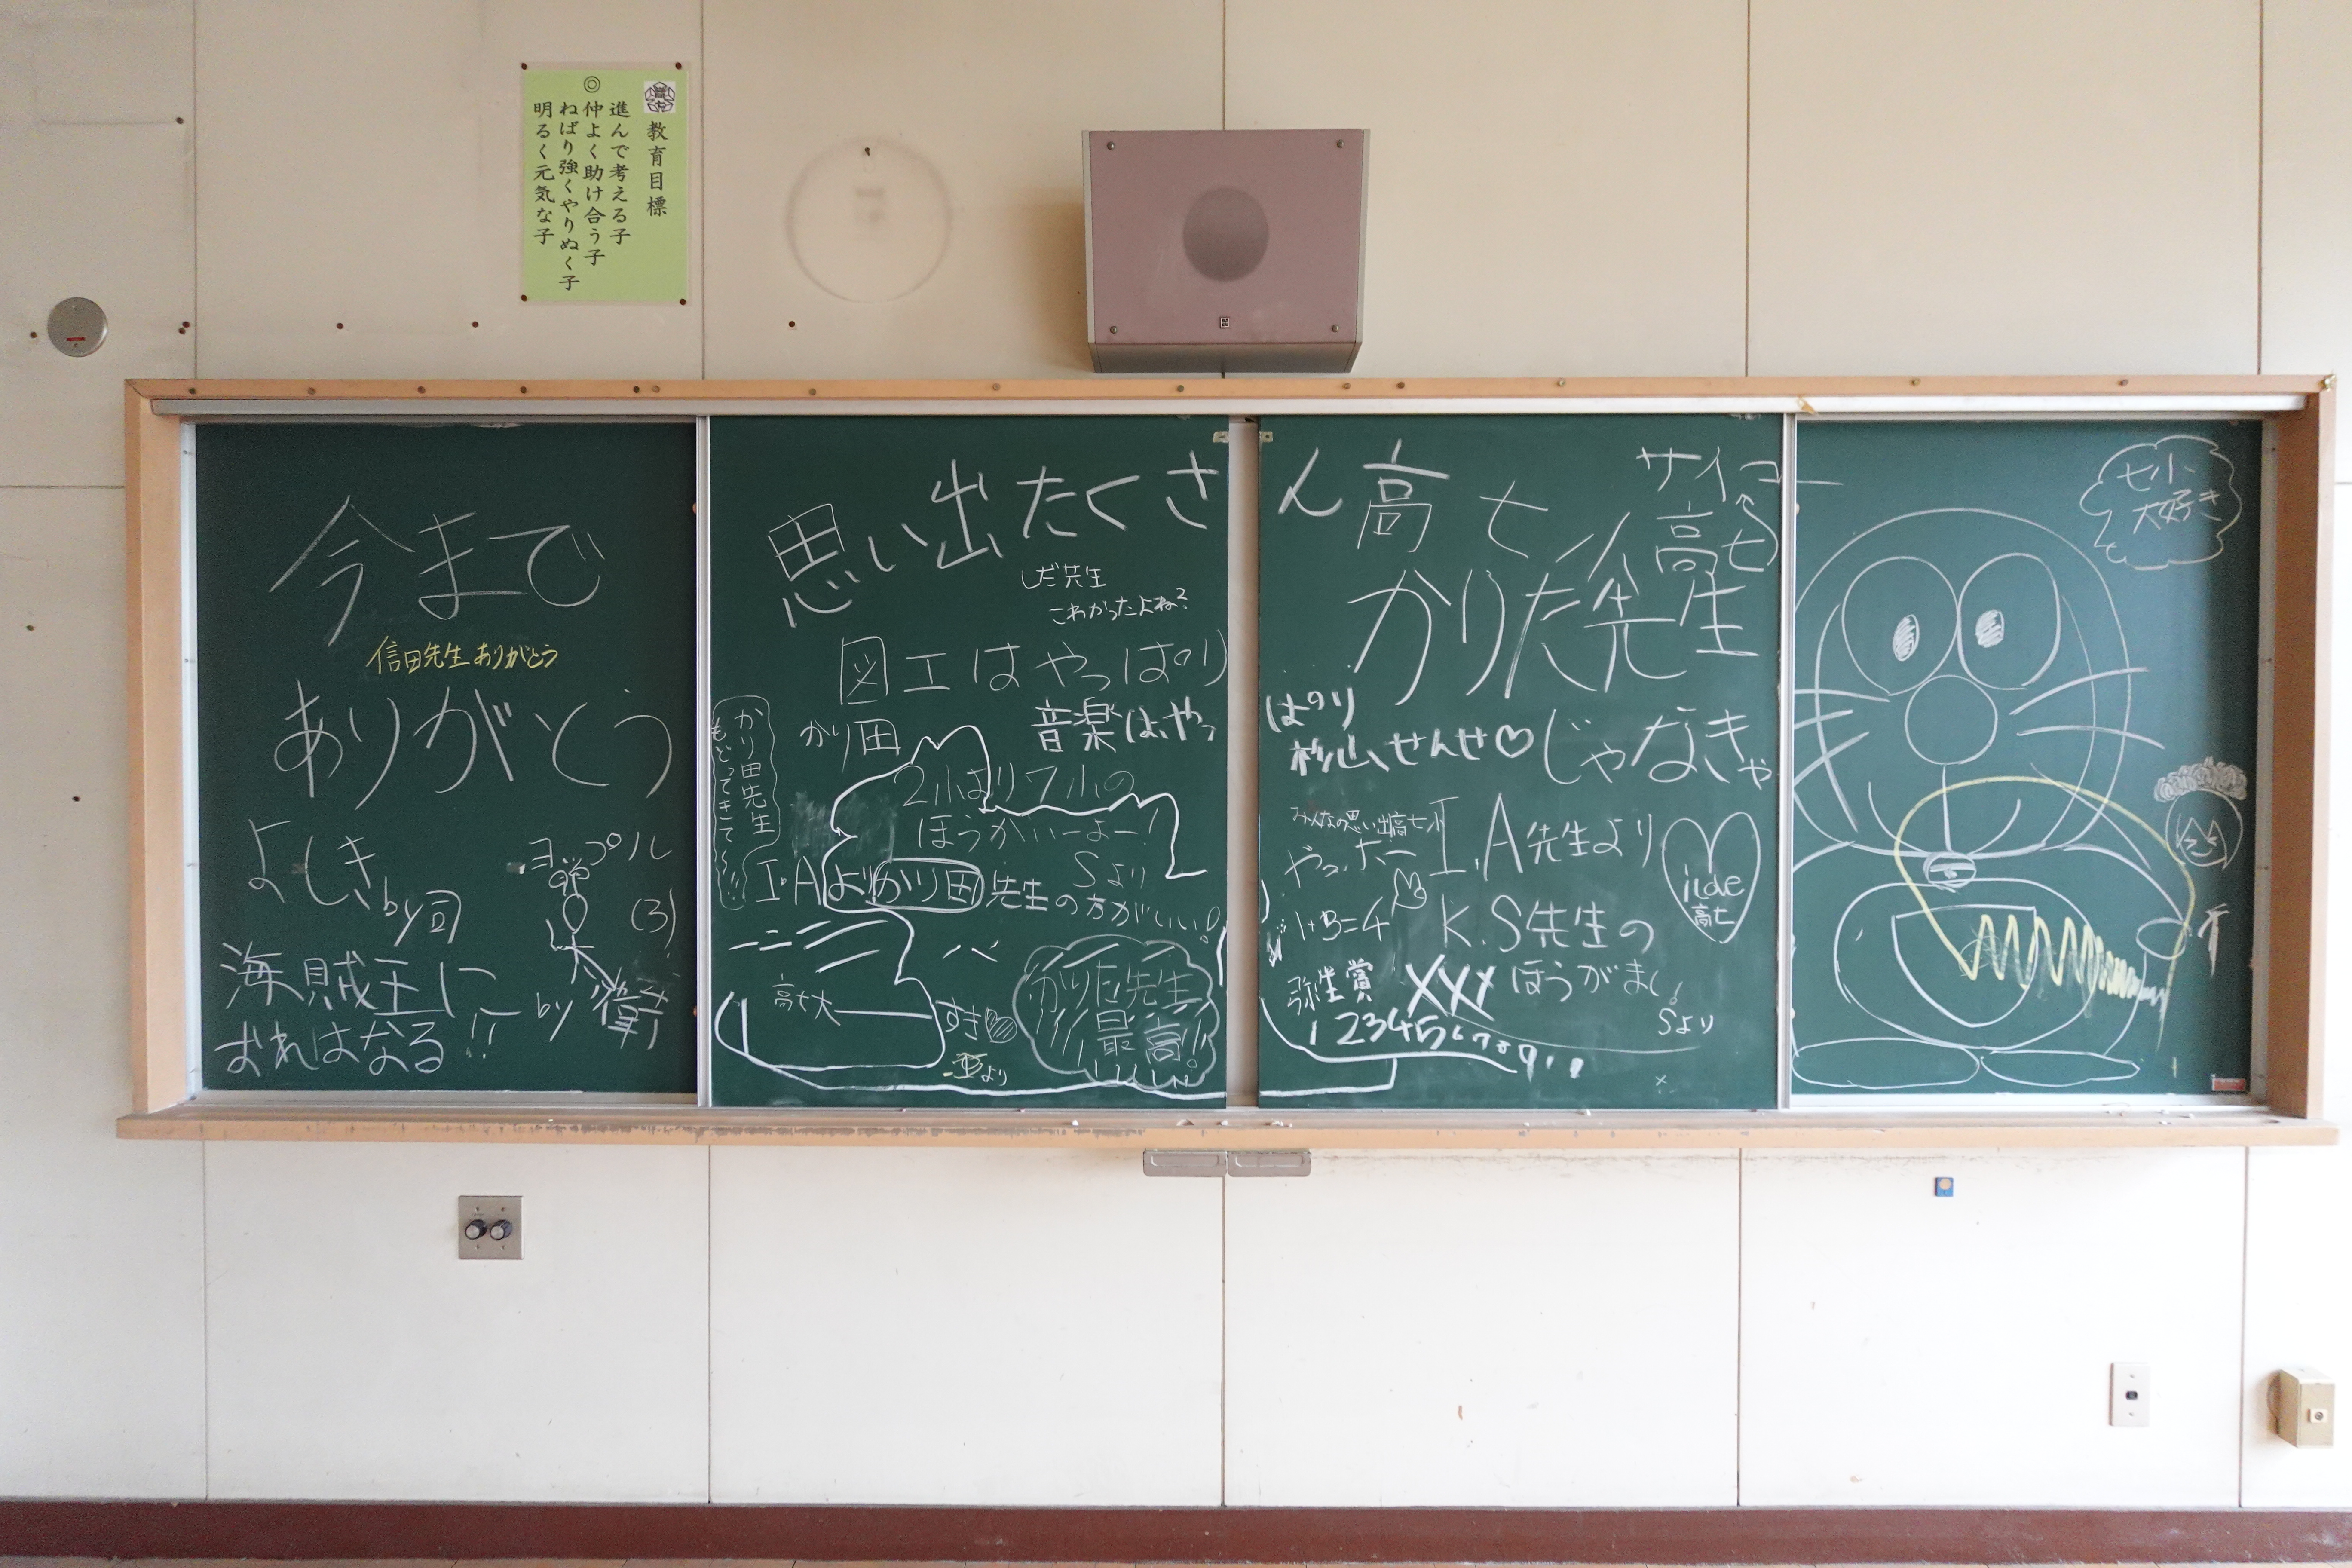 教育目標
進んで考える子
◎仲よく助け合う子
ねばり強くやりぬく子
明るく元気な子
今まで
信田先生ありがとう
ありがとう
よしき
by司
ヨップル
(3)
by 衛
海賊王に
おれはなる!!
思い出たくさん高七
しだ先生
こわかったよね?
図工はやっぱり
かりた先生
じゃなきゃ
かり田
音楽は、やっぱり
杉山せんせ♡
かり田先生
もどってきて~!!
2小より7小の
ほうがいーよー!
Sより
I.Aよりかり田先生の方がいい!
高七大
すき♡
亜より
かりた先生
最高!!
サイコー
高七
みんなの思い出高七小
やったー
I.A先生より
K.S先生の
ほうがまし!
Sより
1+3=4
弥生賞
XXX
12345678910
高七
七小
大好き